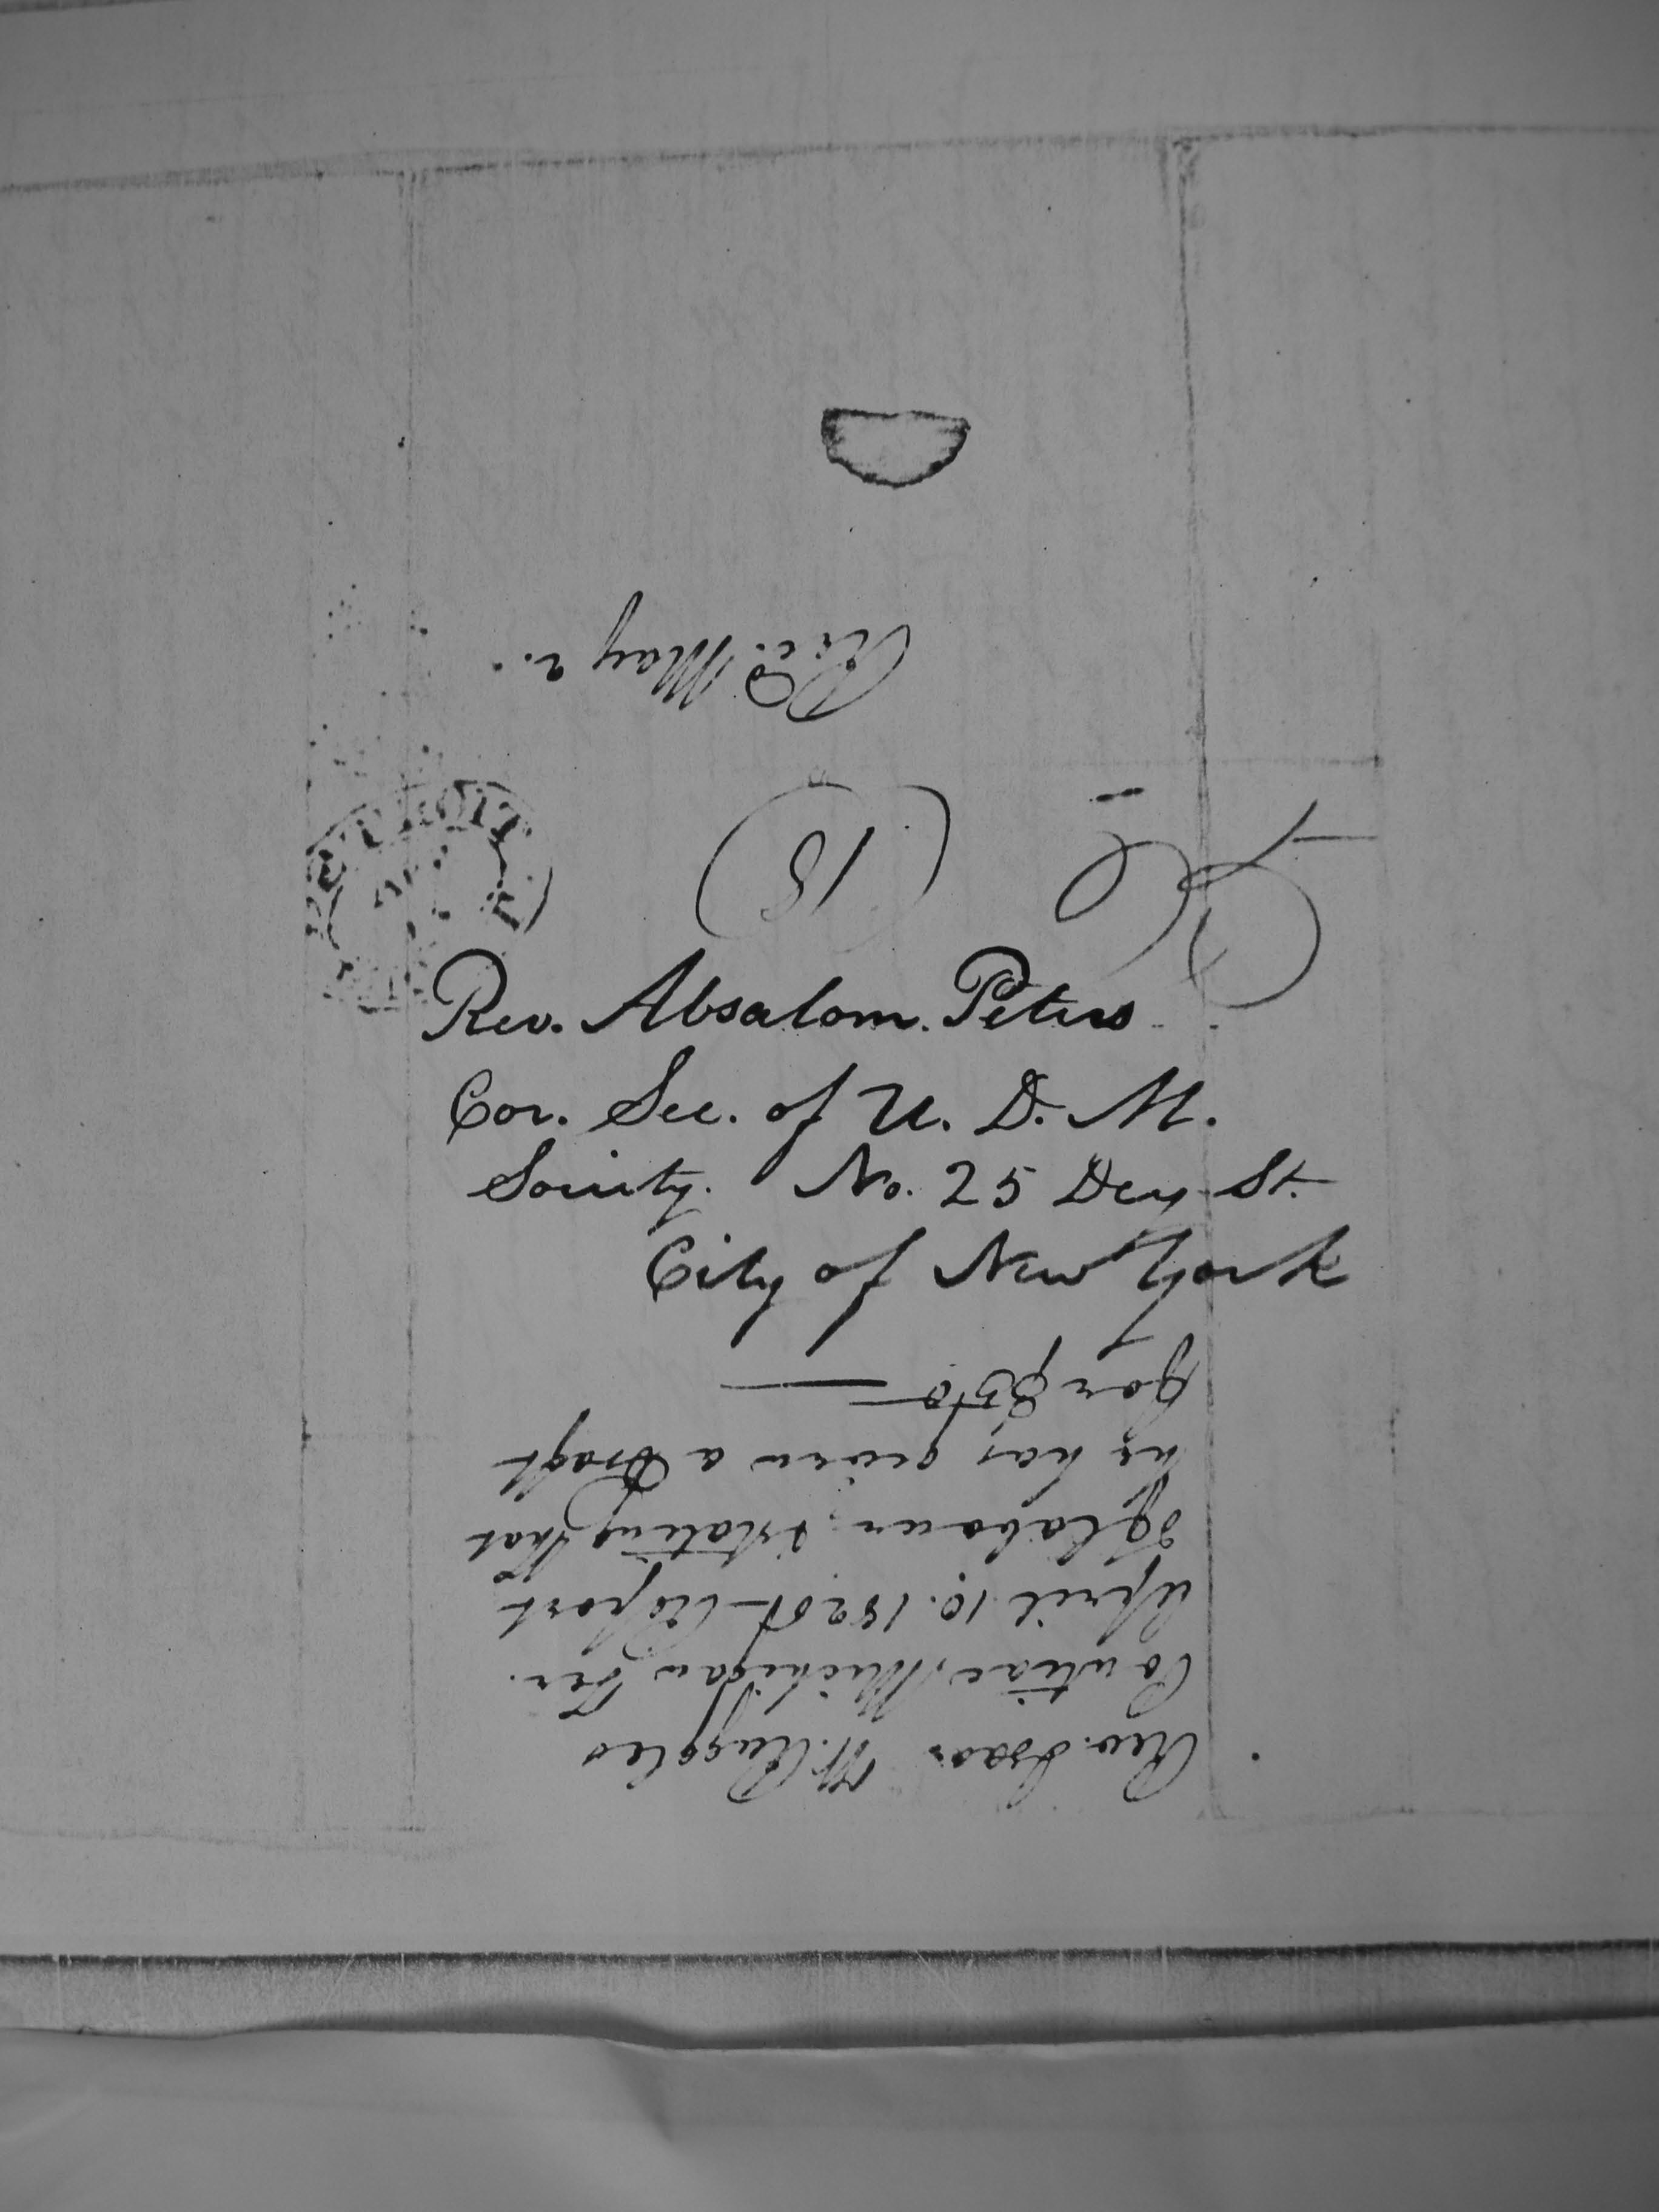 Recd. May 2.
DETROIT
(18)
Rev. Absalom Peters
Cor. Sec. of U. D. M.
Society. No. 25 Dey St.
City of New York
Rev. Isaac W. Ruggles
Pontiac, Michigan Ter.
April 10. 1826 Report
of labour; stating that
he has given a Draft
for $50